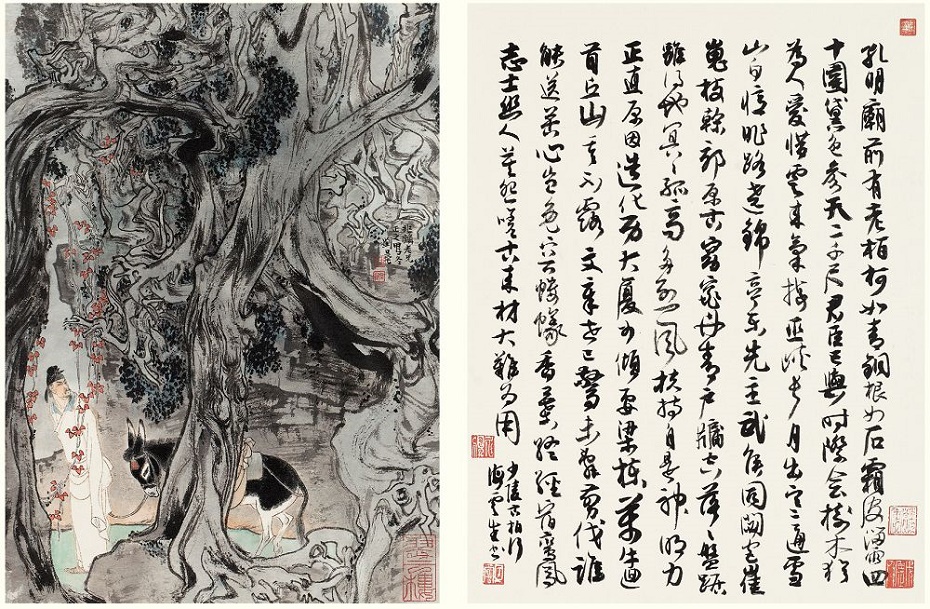 孔明廟前有老柏柯如青銅根如石霜皮溜雨四
十圍黛色參天二千尺君臣已與時際會樹木猶
為人愛惜雲來氣接巫峽長月出寒通雪
山白憶昨路遶錦亭東先主武侯同閟宮崔
嵬枝幹郊原古窈窕丹青戶牖空落落盤踞
雖得地冥冥孤高多烈風扶持自是神明力
正直原因造化功大廈如傾要梁棟萬牛迴
首丘山重不露文章世已驚未辭翦伐誰
能送苦心豈免容螻蟻香葉終經宿鸞鳳
志士幽人莫怨嗟古來材大難為用
少陵古柏行
海雲生書